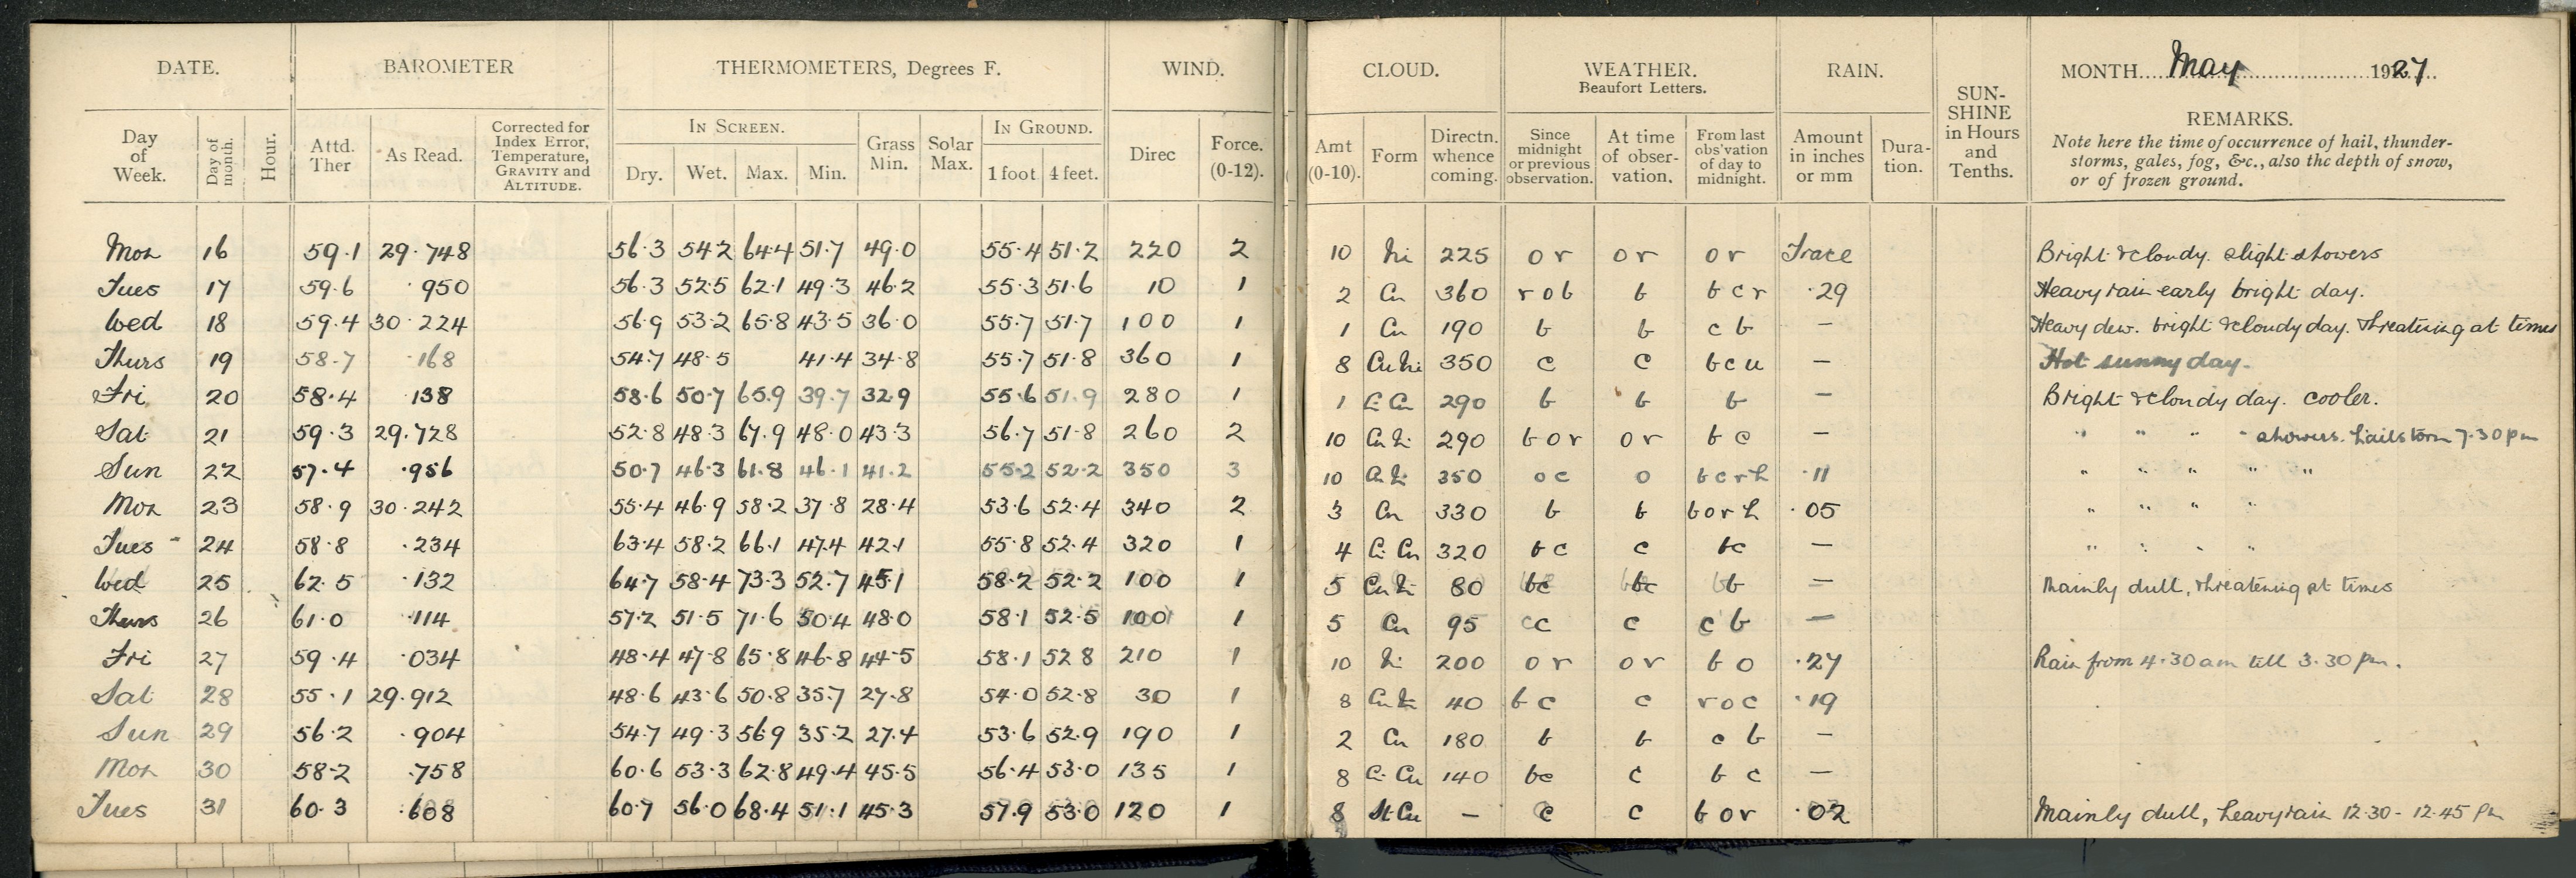 DATE. BAROMETER THERMOMETERS, Degrees F. WIND. CLOUD. WEATHER. Beaufort Letters. RAIN. SUN-SHINE in Hours and Tenths. MONTH May 1927
REMARKS.
Note here the time of occurrence of hail, thunder-
storms, gales, fog, &c., also the depth of snow,
or of frozen ground.
IN SCREEN. IN GROUND.
Day of Week. Day of month. Hour. Attd. Ther As Read. Corrected for Index Error, Temperature, GRAVITY and ALTITUDE. Dry. Wet. Max. Min. Grass Min. Solar Max. 1 foot 4 feet. Direc Force. (0-12). Amt (0-10). Form Directn. whence coming. Since midnight or previous observation. At time of obser-vation. From last obs'vation of day to midnight. Amount in inches or mm Dura-tion.
Mon 16 59.1 29.748 56.3 54.2 64.4 51.7 49.0 55.4 51.2 220 2 10 Ni 225 o r o r o r Trace Bright & cloudy. slight showers
Tues 17 59.6 .950 56.3 52.5 62.1 49.3 46.2 55.3 51.6 10 1 2 Cu 360 r o b b b c r .29 Heavy rain early bright day.
Wed 18 59.4 30.224 56.9 53.2 65.8 43.5 36.0 55.7 51.7 100 1 1 Cu 190 b b c b — Heavy dew. bright & cloudy day. Threatening at times
Thurs 19 58.7 .168 54.7 48.5 41.4 34.8 55.7 51.8 360 1 8 Cu Ni 350 c c b c u — Hot sunny day.
Fri 20 58.4 .138 58.6 50.7 65.9 39.7 32.9 55.6 51.9 280 1 1 Ci Cu 290 b b b — Bright & cloudy day. cooler.
Sat 21 59.3 29.728 52.8 48.3 67.9 48.0 43.3 56.7 51.8 260 2 10 Cu Ni 290 b o r o r b c — " " " " showers. hailstorm 7.30 pm
Sun 22 57.4 .956 50.7 46.3 61.8 46.1 41.2 55.2 52.2 350 3 10 Cu Ni 350 o c o b c r h .11 " " " " "
Mon 23 58.9 30.242 55.4 46.9 58.2 37.8 28.4 53.6 52.4 340 2 3 Cu 330 b b b o r h .05 " " " "
Tues 24 58.8 .234 63.4 58.2 66.1 47.4 42.1 55.8 52.4 320 1 4 Ci Cu 320 b c c bc — " " " "
Wed 25 62.5 .132 64.7 58.4 73.3 52.7 45.1 58.2 52.2 100 1 5 Cu Ni 80 bc bc b — Mainly dull, threatening at times
Thurs 26 61.0 .114 57.2 51.5 71.6 50.4 48.0 58.1 52.5 100 1 5 Cu 95 c c c b —
Fri 27 59.4 .034 48.4 47.8 65.8 46.8 44.5 58.1 52.8 210 1 10 Ni 200 o r o r b o .27 Rain from 4.30 am till 3.30 pm.
Sat 28 55.1 29.912 48.6 43.6 50.8 35.7 27.8 54.0 52.8 30 1 8 Cu Ni 40 b c c r o c .19
Sun 29 56.2 .904 54.7 49.3 56.9 35.2 27.4 53.6 52.9 190 1 2 Cu 180 b b c b —
Mon 30 58.2 .758 60.6 53.3 62.8 49.4 45.5 56.4 53.0 135 1 8 Ci Cu 140 bc c b c —
Tues 31 60.3 .608 60.7 56.0 68.4 51.1 45.3 57.9 53.0 120 1 8 St Cu — c c b o r .02 Mainly dull, heavy rain 12.30 - 12.45 pm